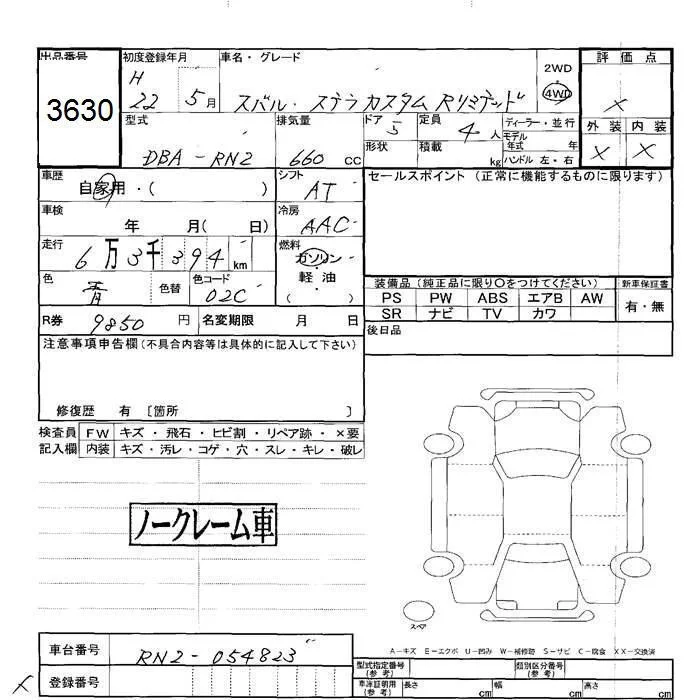 出品番号
3630
初度登録年月
H
22 5月
車名・グレード
スバル・ステラカスタム Rリミテッド
2WD
4WD
評価点
×
外装 内装
× ×
型式
DBA-RN2
排気量
660 cc
ドア 5
定員 4 人
ディーラー・並行
モデル
年式 年
形状
積載 kg
ハンドル 左・右
車歴
自家用・( )
シフト
AT
セールスポイント (正常に機能するものに限ります)
車検
年 月( 日)
冷房
AAC
走行
6万3千394 km
燃料
ガソリン
・
軽油
( )
色
青
色替
色コード
02C
装備品 (純正品に限り○をつけてください)
新車保証書
PS PW ABS エアB AW
有・無
SR ナビ TV カワ
R券 9850 円
名変期限 月 日
後日品
注意事項申告欄 (不具合内容等は具体的に記入して下さい)
修復歴 有 〔箇所 〕
検査員 FW キズ・飛石・ヒビ割・リペア跡・×要
記入欄 内装 キズ・汚レ・コゲ・穴・スレ・キレ・破レ
ノークレーム車
スペア
A-キズ E-エクボ U-凹み W-補修跡 S-サビ C-腐食 XX-交換済
車台番号 RN2-054823
× 登録番号
型式指定番号
(参考)
類別区分番号
(参考)
車庫証明用
(参考)
長さ cm 幅 cm 高さ cm